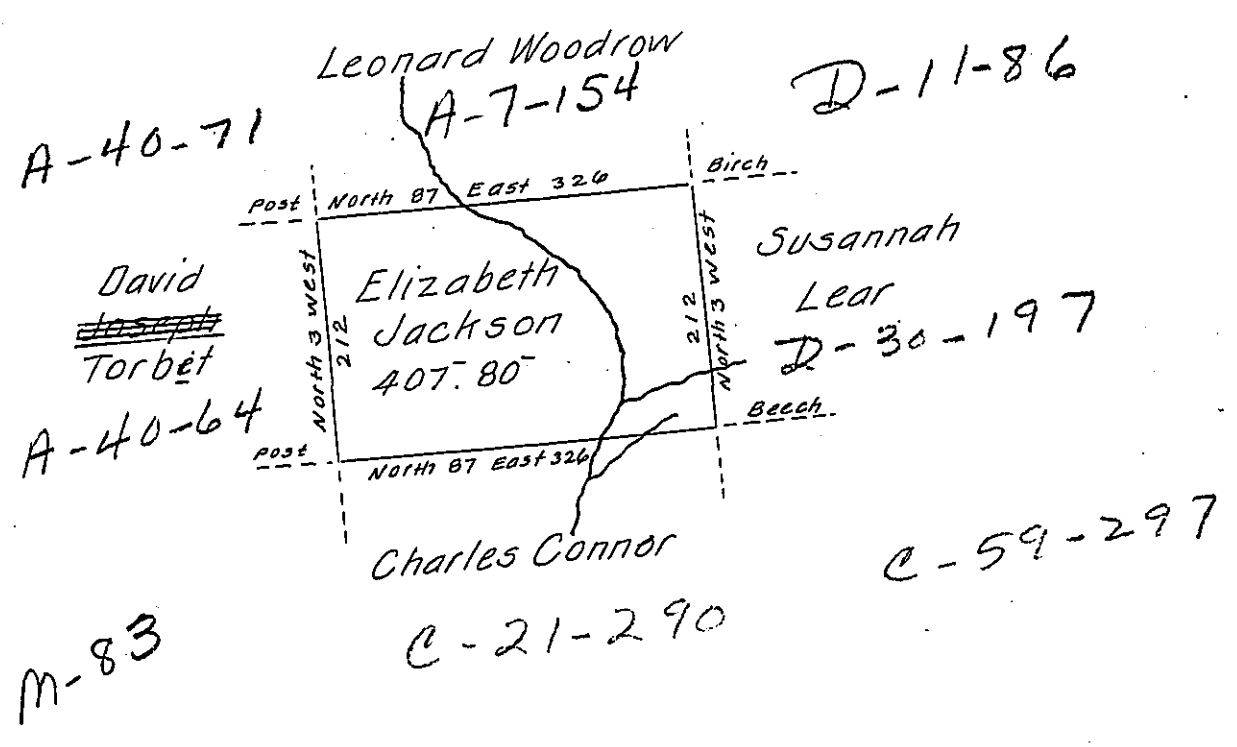 Leonard Woodrow
A-7-154
D-11-86
A-40-71
Birch
Post
North 87 East 326
David
Joseph
Torbet
North 3 West
212
Elizabeth
Jackson
407.80
212
North 3 West
Susannah
Lear
D-30-197
A-40-64
Beech
Post
North 87 East 326
Charles Connor
C-59-297
C-21-290
M-83